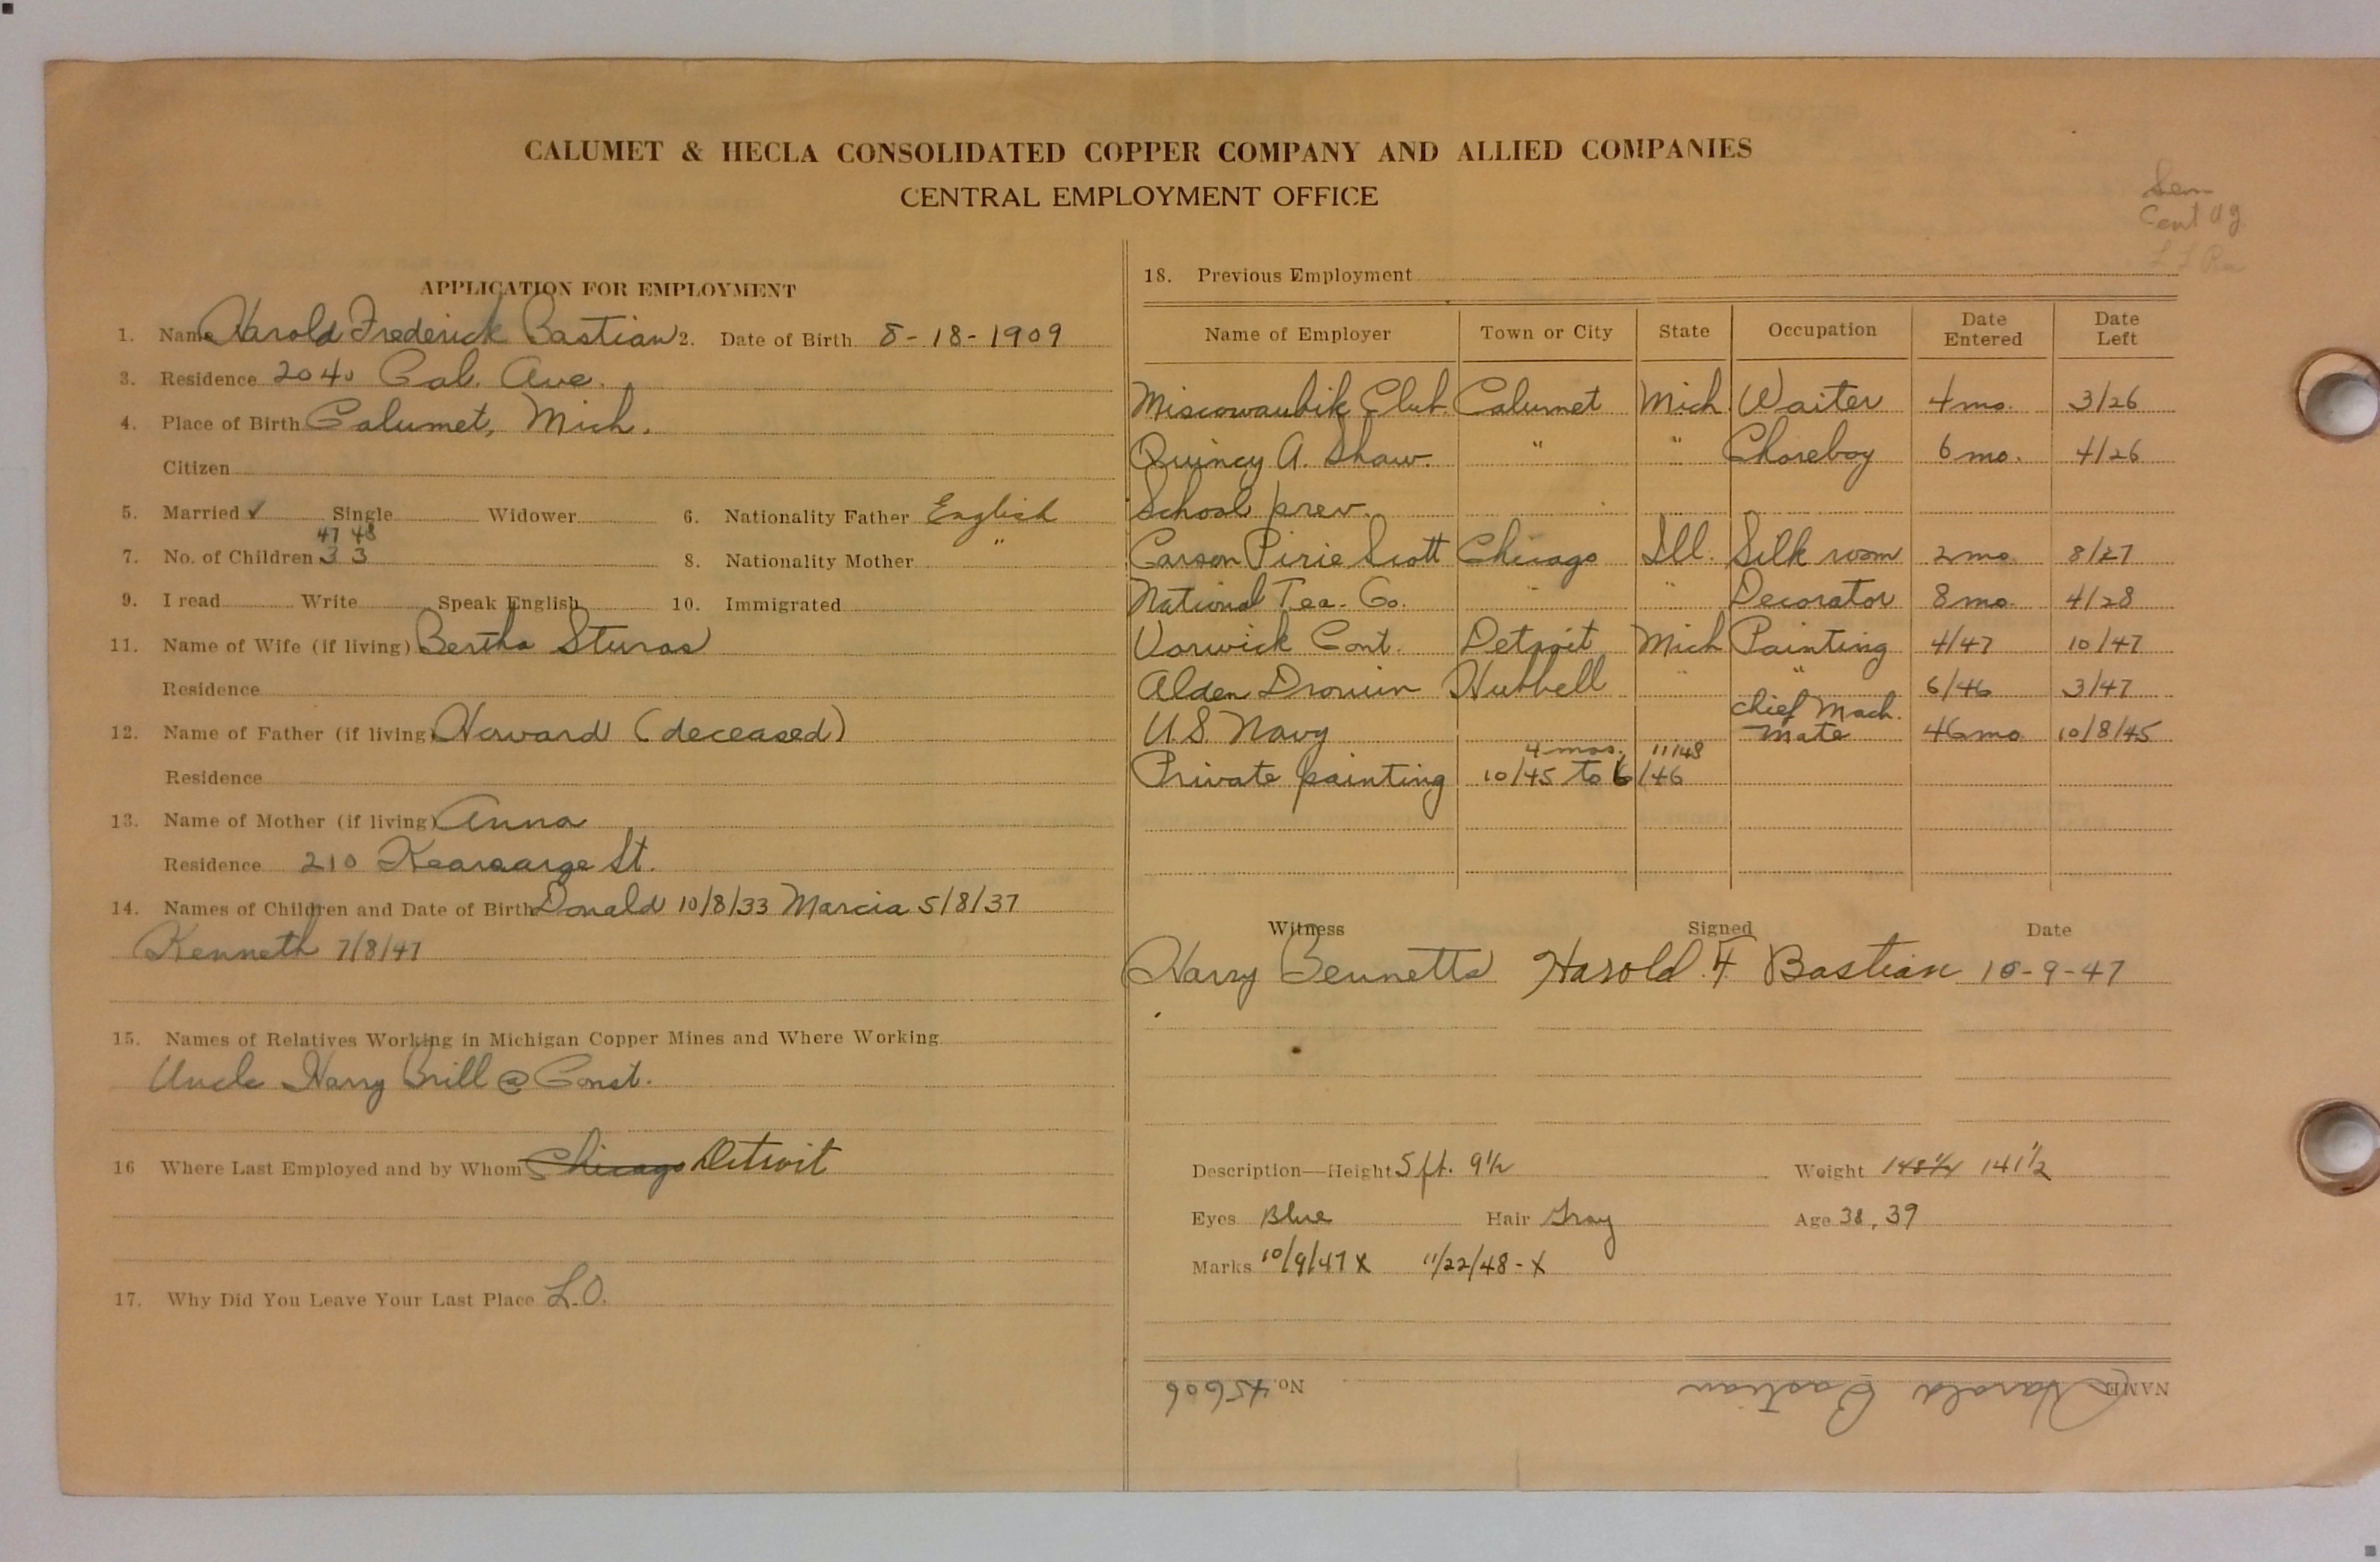 CALUMET & HECLA CONSOLIDATED COPPER COMPANY AND ALLIED COMPANIES
CENTRAL EMPLOYMENT OFFICE
Cent
APPLICATION FOR EMPLOYMENT
1. Name Harold Frederick Bastian 2. Date of Birth 8-18-1909
3. Residence 2040 Cal. Ave.
4. Place of Birth Calumet, Mich.
Citizen
5. Married ✓ Single Widower 6. Nationality Father English
47 48
7. No. of Children 3 3 8. Nationality Mother "
9. I read Write Speak English 10. Immigrated
11. Name of Wife (if living) Bertha Sturos
Residence
12. Name of Father (if living) Howard (deceased)
Residence
13. Name of Mother (if living) Anna
Residence 210 Kearsarge St.
14. Names of Children and Date of Birth Donald 10/8/33 Marcia 5/8/37
Kenneth 7/8/47
15. Names of Relatives Working in Michigan Copper Mines and Where Working
Uncle Harry Brill @ Const.
16 Where Last Employed and by Whom Chicago Detroit
17. Why Did You Leave Your Last Place L.O.
18. Previous Employment
Name of Employer Town or City State Occupation Date Entered Date Left
Miscowaubik Club Calumet Mich Waiter 4 mo. 3/26
Quincy A. Shaw. " " Choreboy 6 mo. 4/26
School prev.
Carson Pirie Scott Chicago Ill. Silk room 2 mo. 8/27
National Tea. Co. " " Decorator 8 mo. 4/28
Varwick Cont. Detroit Mich Painting 4/47 10/47
Alden Drouin Hubbell " " 6/46 3/47
U.S. Navy Chief Mach. Mate 46 mo 10/8/45
4 mos. 11/48
Private painting 10/45 to 6/46
Witness Signed Date
Harry Bennetts Harold F Bastian 10-9-47
Description—Height 5 ft. 9½ Weight 148¼ 141½
Eyes Blue Hair Gray Age 38, 39
Marks 10/9/47 X 11/22/48 - X
NAME Harold Bastian No. 45606